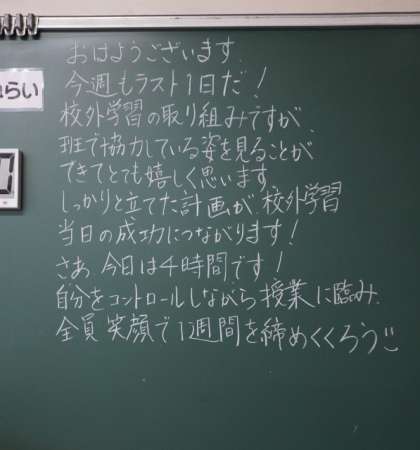 おはようございます.
今週もラスト1日だ！
校外学習の取り組みですが、
班で協力している姿を見ることが
できてとても嬉しく思います.
しっかりと立てた計画が、校外学習
当日の成功につながります！
さあ、今日は4時間です！
自分をコントロールしながら授業に臨み、
全員笑顔で1週間を締めくくろう
らい